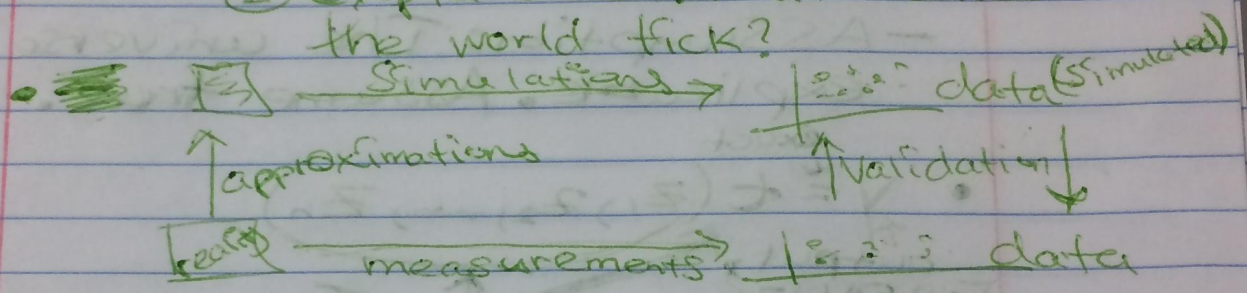 the world tick?
simulations data (simulated)
approximations validation
measurements data